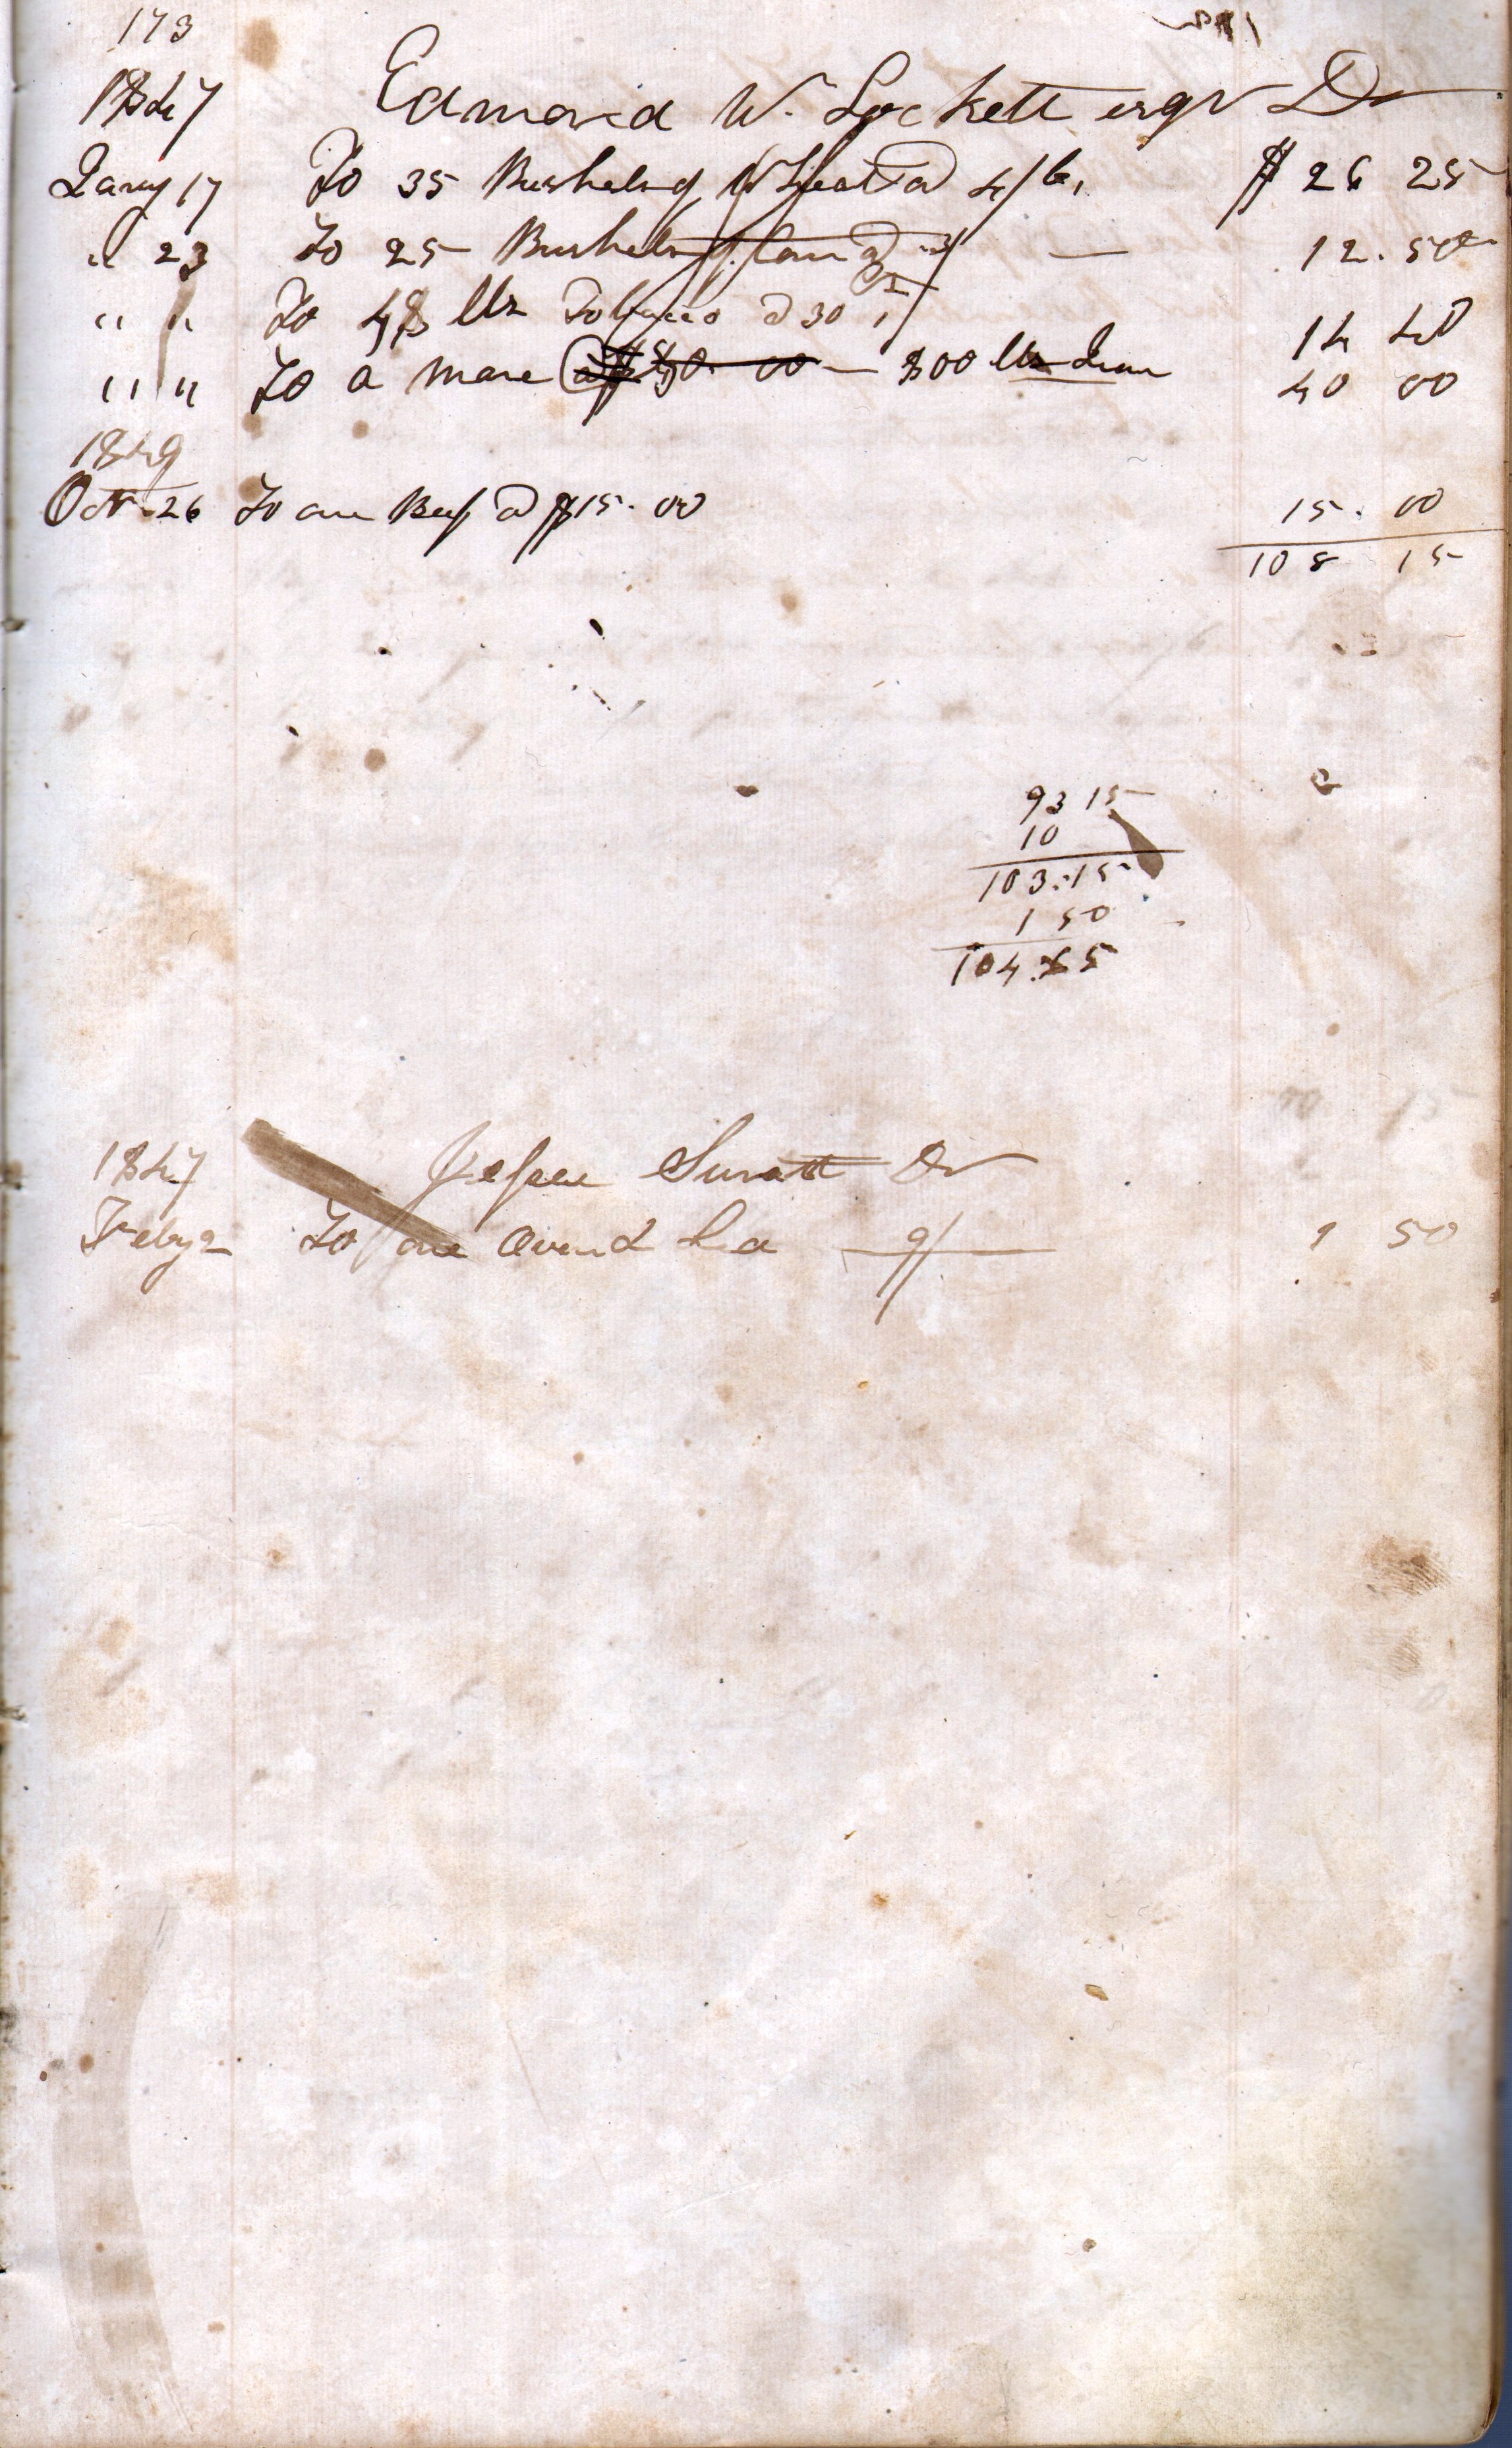 173
1847 Edmond W. Lockett esqr Dr
Jany 17 To 35 Bushels of Wheat @ 4/6, $ 26 25
" 23 To 25 Bushels of Corn @ 3/ — 12.50
" " To 48 lbs Tobacco @ 30 14 40
" " To a mare @ $40. 00 — 800 lbs Iron 40 00
1849
Oct. 26 To one Beef @ $15. 00 15. 00
108 15
93 15
10
103.15
1 50
104.65
1847 Jessee Suratt Dr
Feby 2 To one Oven & Lid 9/ 1 50